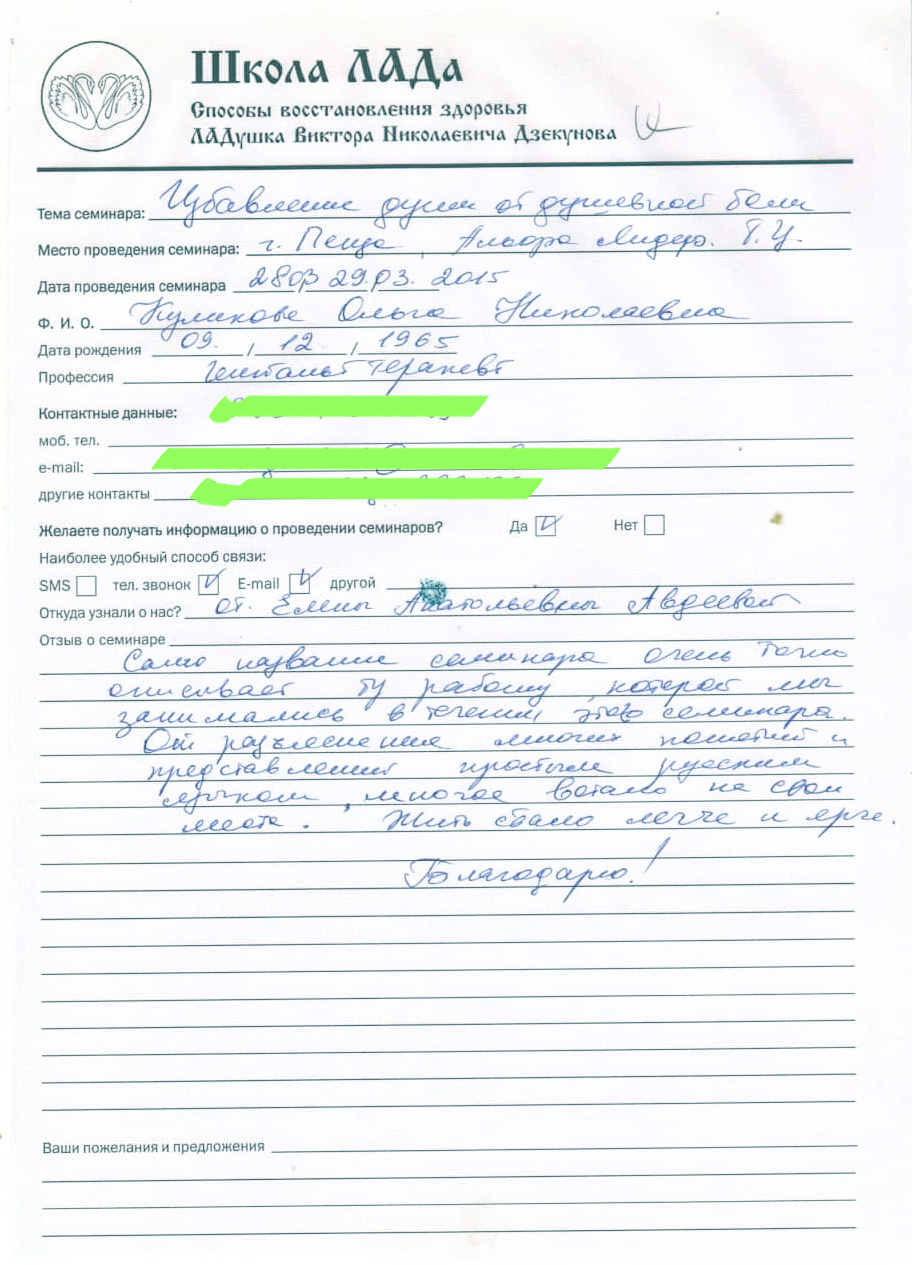 Школа ЛАДа
Способы восстановления здоровья
ЛАДушка Виктора Николаевича Дзекунова
Тема семинара: Избавление души от душевной боли
Место проведения семинара: г. Пенза, Лидер. Т.Ц.
Дата проведения семинара 28.03 29.03. 2015
Ф. И. О. Куликова Ольга Николаевна
Дата рождения 09. / 12. / 1965
Профессия гештальт терапевт
Контактные данные:
моб. тел.
e-mail:
другие контакты
Желаете получать информацию о проведении семинаров? Да Нет
Наиболее удобный способ связи:
SMS тел. звонок E-mail другой
Откуда узнали о нас? от. Елены Анатольевны Авдеевой
Отзыв о семинаре
Само название семинара очень точно
описывает ту работу, которой мы
занимались в течении этого семинара.
От разъяснения многих понятий и
представлений простым русским
языком, многое встало на свои
места. Жить стало легче и ярче.
Благодарю!
Ваши пожелания и предложения